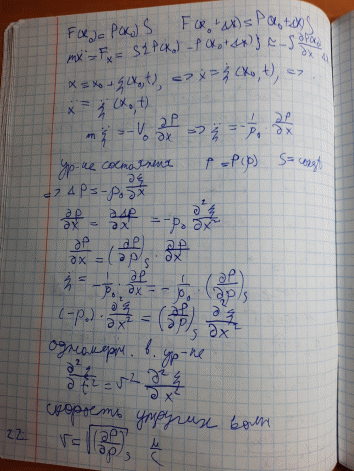 F(x₀) = P(x₀) S   F(x₀+Δx) = P(x₀+Δx) S
mẍ = Fₓ = S{P(x₀) − P(x₀+Δx)} ≈ −S ∂P(x₀)/∂x Δx
x = x₀ + ξ(x₀,t), => ẋ = ξ̇(x₀,t), =>
ẍ = ξ̈(x₀,t)
mξ̈ = −V₀ ∂P/∂x => ξ̈ = −1/ρ₀ ∂P/∂x
ур-ие состояния P = P(ρ) S = const
=> Δρ = −ρ₀ ∂ξ/∂x
∂ρ/∂x = ∂Δρ/∂x = −ρ₀ ∂²ξ/∂x²
∂P/∂x = (∂P/∂ρ)ₛ · ∂ρ/∂x
ξ̈ = −1/ρ₀ · ∂P/∂x = −1/ρ₀ · (∂P/∂ρ)ₛ
(−ρ₀) · ∂²ξ/∂x² = (∂P/∂ρ)ₛ ∂²ξ/∂x²
одномерн. в. ур-ие
∂²ξ/∂t² = v² ∂²ξ/∂x²
скорость упругих волн
22 v = √(∂P/∂ρ)ₛ м/с